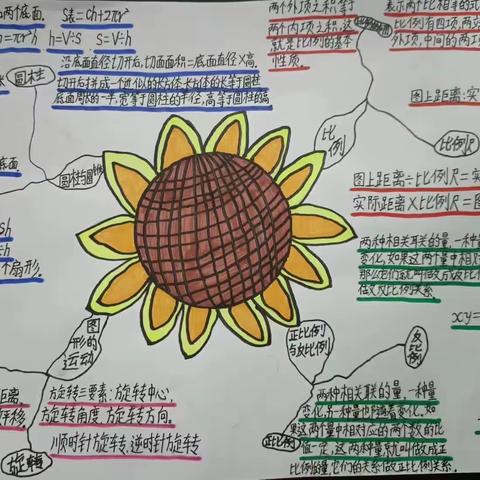 两个底面。 S表=Ch+2πr²
h=V÷S S=V÷h
沿底面直径切开后,切面面积=底面直径×高。
切开后拼成一个近似的长方体,长方体的长等于圆柱
底面周长的一半,宽等于圆柱的半径,高等于圆柱的高
圆柱
底面
圆柱与圆锥
个扇形。
两个外项之积,等于
两个内项之积,这
就是比例的基本
性质。
表示两个比相等的式
比例有四项,两
外项,中间的两项
比例
比例尺
图上距离:实
图上距离÷比例尺=实
实际距离×比例尺=图
两种相关联的量,一种量
变化,如果这两个量中相对
那么它们就叫做成反比
做反比例关系
xy=
正比例
与反比例
反
比例
正比例
两种相关联的量,一种量
变化,另一种量也随着变化,如
果这两个量中相对应的两个数的比
值一定,这两种量就叫做成正
比例的量,它们的关系做正比例关系。
图
形的
运动
距离
平移
旋转
旋转三要素:旋转中心,
旋转角度,旋转方向。
顺时针旋转,逆时针旋转